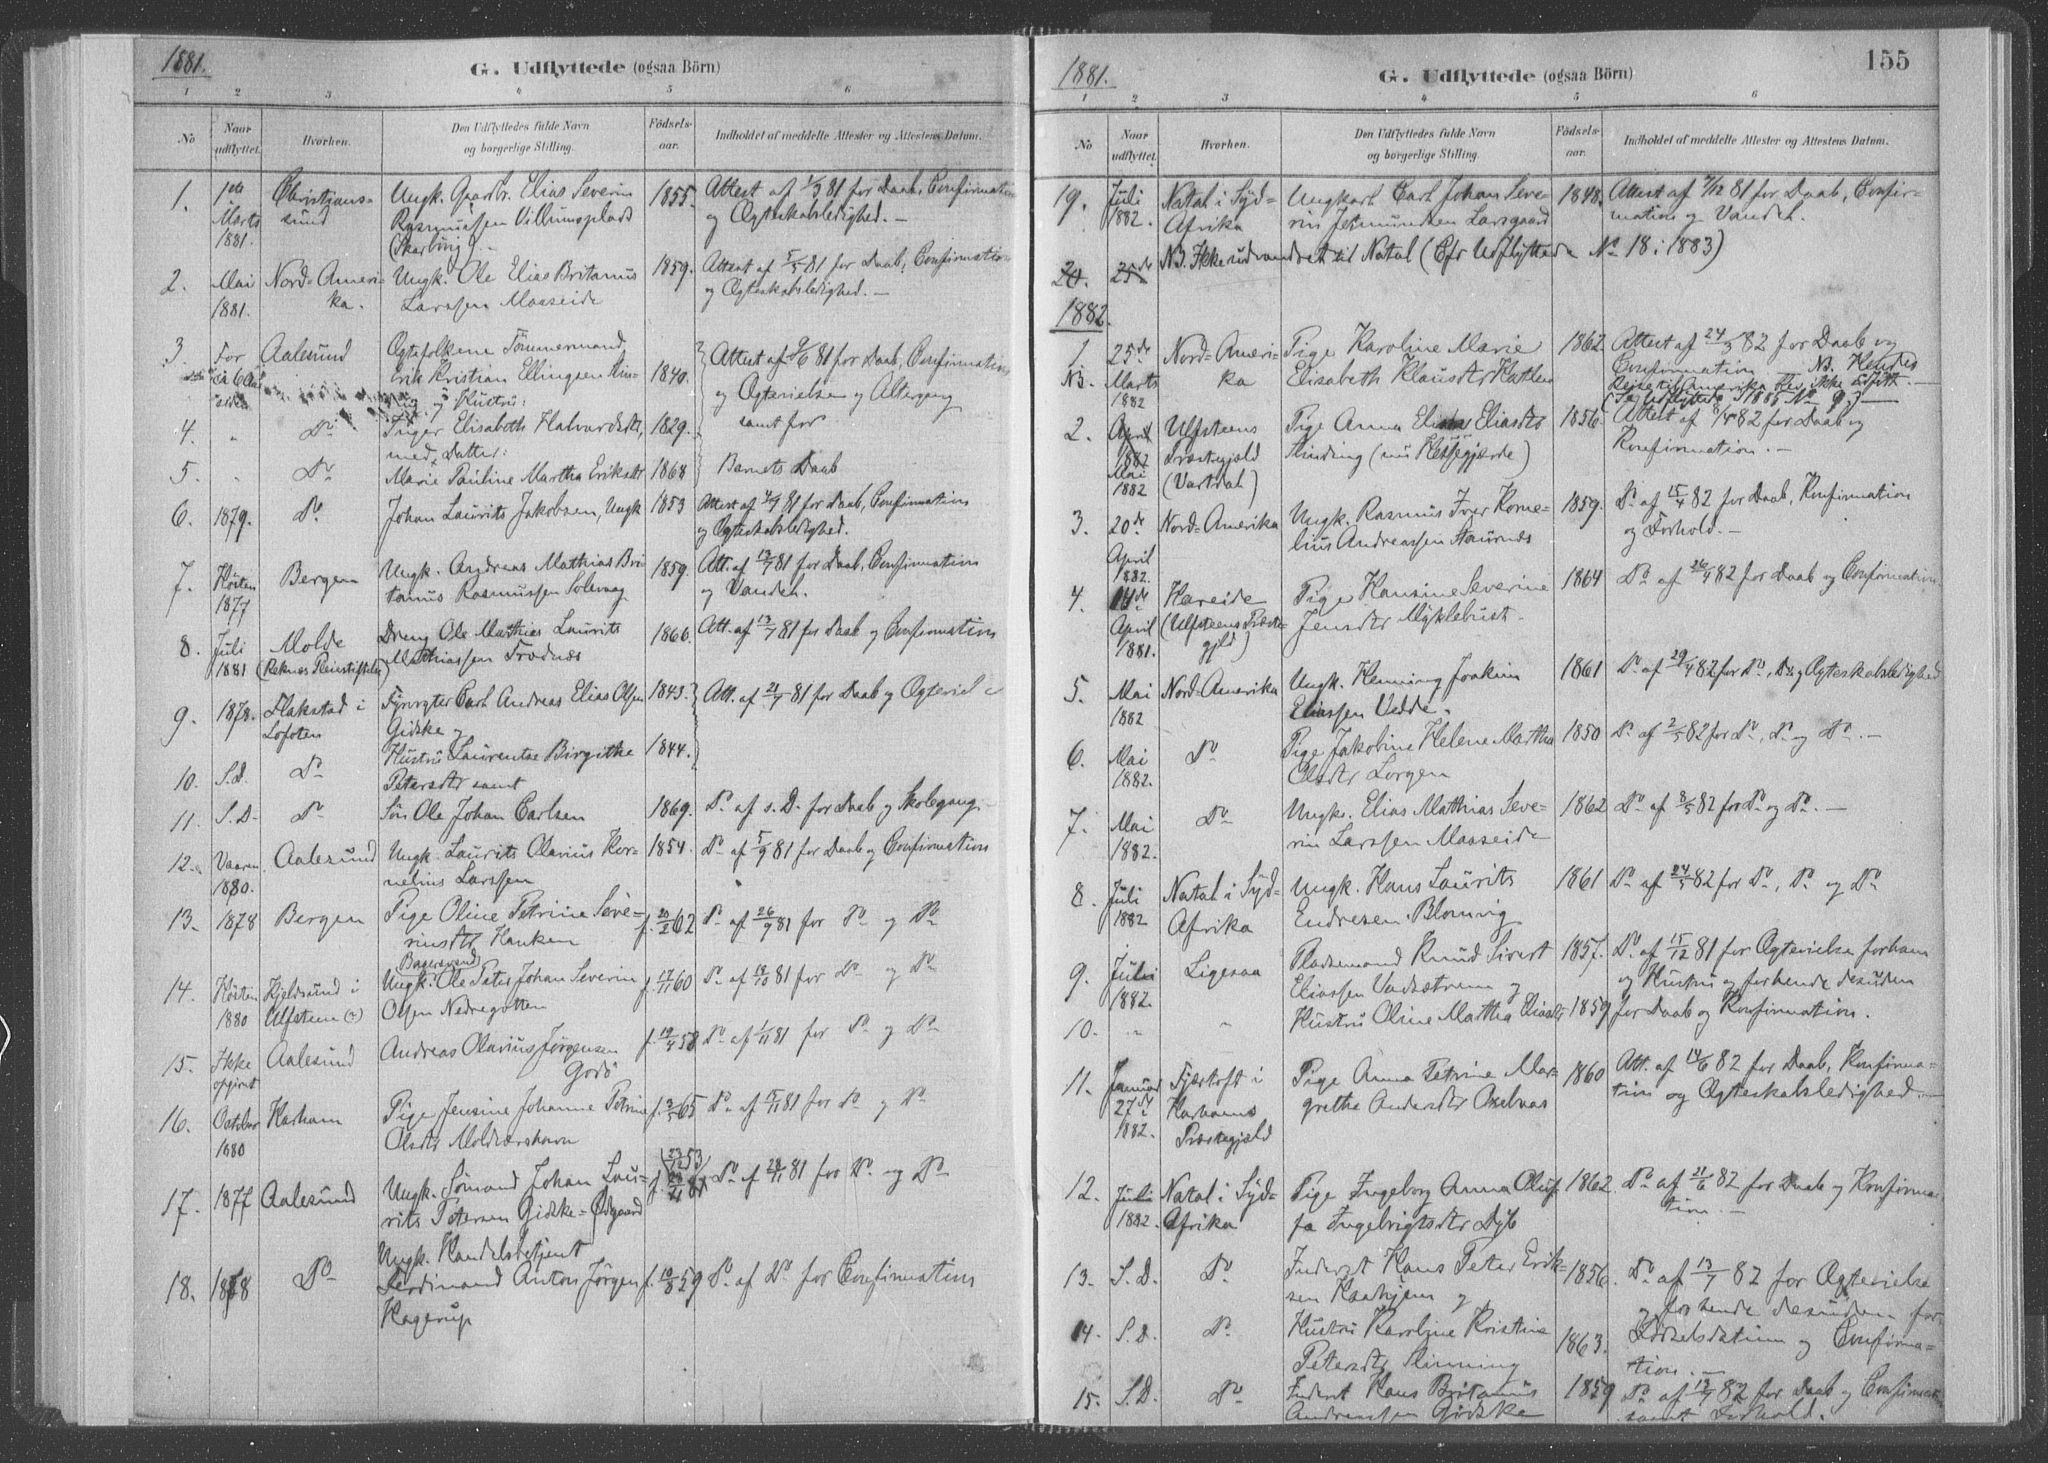 1881.
G. Udflyttede (ogsaa Börn)
1 2 3 4 5 6
No Naar udflyttet. Hvorhen. Den Udflyttedes fulde Navn og borgerlige Stilling. Födsels-aar. Indholdet af meddelte Attester og Attestens Datum.
1. 1ste Christians- Ungk. Elias Severin 1855. Attest af 1/3 81 for Daab, Confirmation
Marts sund Rasmussen Villumsplads og Ægteskabsledighed. —
1881.
2. Mai Nord-Ameri- Ungk. Ole Elias Britanus 1859. Attest af 5/5 81 for Daab, Confirmation
1881. ka. Larssen Maaseide og Ægteskabsledighed. —
3. For Aalesund Ægtefolkene Tömmermand
ca 6 Aar Erik Kristian Ellingsen 1840. Attest af 9/6 81 for Daab, Confirmation
siden og Hustru: og Ægtevielse og Altergang
4. " Do Inger Elisabeth Halvardsdtr, 1829. samt for
med Datter:
5. " Do Marie Pauline Martha Eriksdtr 1868 Barnets Daab
6. 1879. Do Johan Laurits Jakobsen, Ungk 1853 Attest af 81 for Daab, Confirmation
og Ægteskabsledighed.
7. Hösten Bergen Ungk. Andreas Mathias Bri- 1859. Att. af 13/7 81 for Daab, Confirmation
1877 tanus Rasmussen Solevaag og Vandel.
8. Juli Molde Dreng Ole Mathias Laurits 1866. Att. af 13/7 81 for Daab og Confirmation
1881 (Reknes Pleiestiftelse) Mathiassen
9. 1878. Flakstad i Fyrvogter Carl Andreas Elias Olsen 1843. Att. af 21/7 81 for Daab og Ægteviel
Lofoten Gidske og
10. S.D. Do Hustru Laurentse Birgithe 1844.
Petersdtr samt
11. S.D. Do Sön Ole Johan Carlsen 1869. Do af s. D. for Daab og Skolegang
12. Vaaren Aalesund Ungk. Laurits Olavius Kor- 1854. Do af 5/9 81 for Daab og Confirmation
1880. nelius Larssen
13. 1878 Bergen Pige Oline Petrine Seve- f. 20/2 62 Do af 26/9 81 for Do og Do
rinsdtr Hanken
Bagersvend
14. Hösten Kjeldsund i Ungk. Ole Peter Johan Severin f. 17/11 60 Do af 18/10 81 for Do og Do
1880 Ulfsteen (?) Olsen Nedregotten
15. Ikke Aalesund Andreas Olavius Jörgensen f. 19/4 58 Do af 1/11 81 for Do og Do
opgivet Godö
16. October Harham Pige Jensine Johanne Petrine f. 65 Do af 81 for Do og Do
1880 Olsdtr Moldværshavn
(23/12 53)
17. 1877 Aalesund Ungk. Sömand Johan Lau- Do af 28/11 81 for Do og Do
rits Petersen Gidske-Ödgaard
Ungk. Handelsbetjent
18. 1878 Do Ferdinand Anton Jörgen f. 10/8 59 Do af Do for Confirmation
Hagerup
155
1881.
G. Udflyttede (ogsaa Börn)
1 2 3 4 5 6
No Naar udflyttet. Hvorhen. Den Udflyttedes fulde Navn og borgerlige Stilling. Födsels-aar. Indholdet af meddelte Attester og Attestens Datum.
19. Juli Natal i Syd- Ungkarl Carl Johan Seve- 1848. Attest af 7/12 81 for Daab, Confir-
1882. Afrika rin Jetmundsen Larsgaard mation og Vandel.
20. 25de NB. Ikke udvandret til Natal (Cfr Udflyttede No 18 i 1883)
1882.
1. 25de Nord-Ameri- Pige Karoline Marie 1862. Attest af 24/3 82 for Daab og
NB. Marts ka Elisabeth Klausdtr Confirmation — NB. Hendes
1882 Reise til Amerika blev ikke
(Se Udflyttede 1885 No 9.) —
2. April Ulfsteens Pige Anna Eliasdtr 1856. Attest af 82 for Daab og
1882 Præstegjæld (nu Hessegjærde) Konfirmation. —
Mai
1882 (Vartdal)
3. 20de Nord-Amerika Ungk. Rasmus Iver Korne- 1859. Do af 15/4 82 for Daab, Konfirmation
April lius Andreassen Staurnes og Forhold. —
1882.
4. 14de Hareide Pige Hansine Severine 1864 Do af 26/4 82 for Daab og Confirmation
April (Ulfsteens Præste- Jensdtr Myklebust.
1881. gjeld)
5. Mai Nord-Amerika Ungk. Henning Joakim 1861 Do af 29/4 82 for Do, Do og Ægteskabsledighed
1882 Eliassen Vedde.
6. Mai Do Pige Jakobine Helene Martha 1850 Do af 2/5 82 for Do, Do og Do. —
1882. Olsdtr Lorgen
7. Mai Do Ungk. Elias Mathias Seve- 1862 Do af 8/5 82 for Do og Do. —
1882. rin Larssen Maaseide
8. Juli Natal i Syd- Ungk. Hans Laurits 1861 Do af 24/5 82 for Do, Do og Do
1882 Afrika Endresen Blomvig
9. Juli Ligesaa Pladsemand Knud Sivert 1857. Do af 15/12 81 for Ægtevielse for ham
1882. Eliassen Vadstrem og og Hustru og for hende desuden
10. " " Hustru Oline Mathea Eliasdtr 1859 for Daab og Konfirmation.
11. Januar Fjærtoft i Pige Anna Petrine Mar- 1860 Att. af 14/6 82 for Daab, Konfirma-
27de Harhams grethe Andersdtr Oxebaas tion og Ægteskabsledighed. —
1882. Præstegjæld
12. Juli Natal i Syd- Pige Ingeborg Anna Oluf- 1862. Do af 21/6 82 for Daab og Konfirma-
1882. Afrika fa Ingebrigtsdtr Dyb tion. —
13. S.D. Do Inderst Hans Peter Erik- 1856. Do af 13/7 82 for Ægtevielse
sen og og for hende desuden for
14. S.D. Do Hustru Karoline Kristine 1863. Födselsdatum og Confirma-
Petersdtr Slinning tion. —
15. S.D. Do Inderst Hans Britanius 1859 Do af 13/7 82 for Daab og Confirmation
Andreassen Gidske samt Forhold.